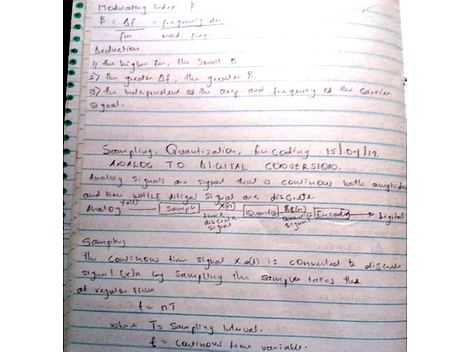 Modulating Index β
β = Δf = frequency de
fm mod. freq
Deduction
1) the higher fm, the small β
2) the greater Δf, the greater β
3) the independent of the amp and frequency of the carrier
signal.
Sampling, Quantization, Encoding 15/04/19
ANALOG TO DIGITAL CONVERSION.
Analog signals are signal that is continous both
and time WHILE digital signal are discrete
Analog Sample X(n) Quantiz Encode Digital
time discrete signal
Sampling
The continous time signal is converted to discrete
signal (x)n by sampling the samples takes the
at regular time
t = nT
where T = Sampling Interval.
t = continous time variable.